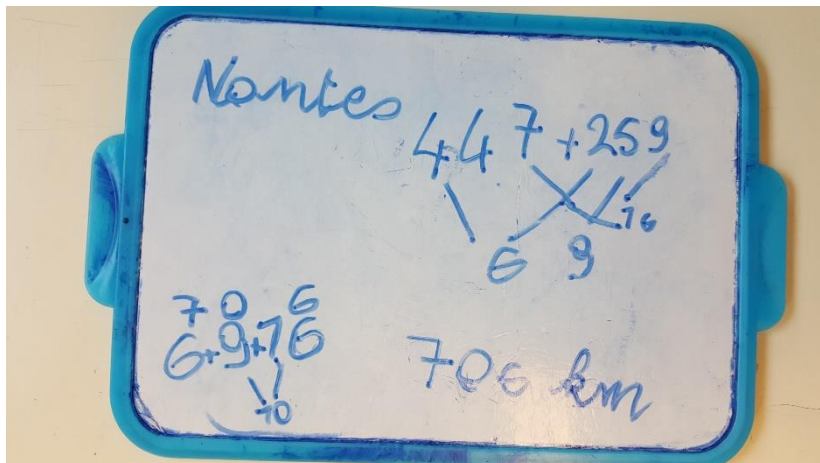 Nantes
447+259
16
6 9
7 0 6
6+9+16
10
706 km